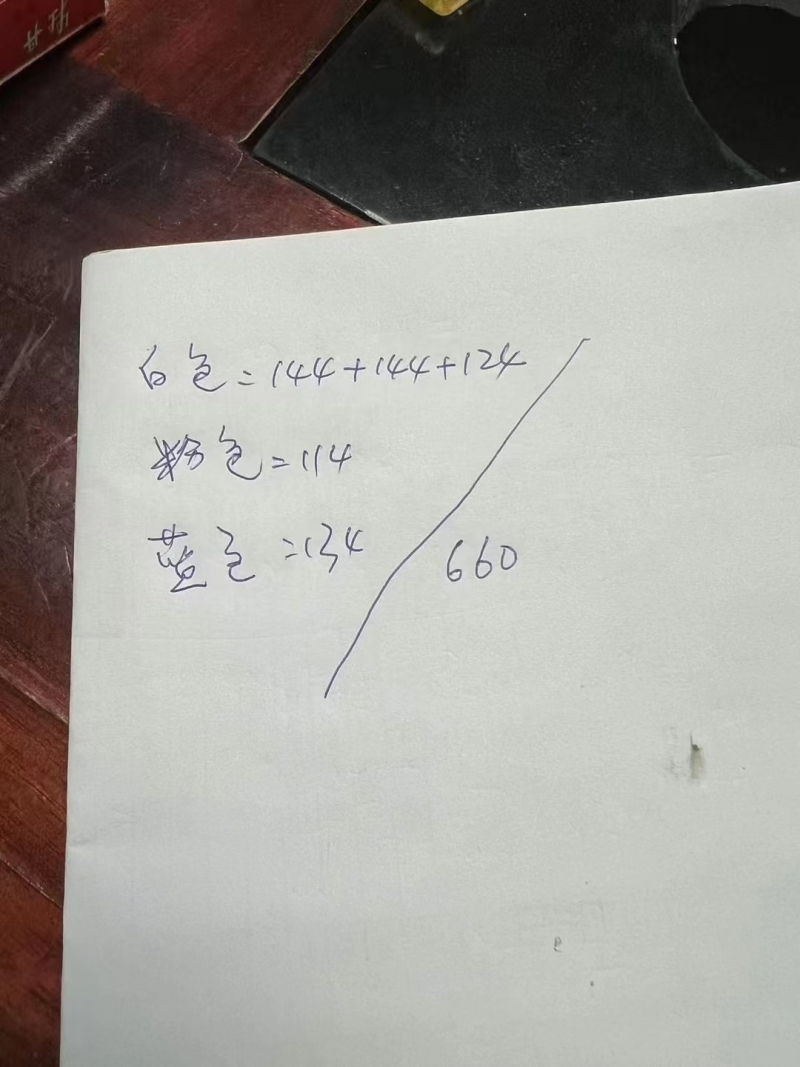 白色=144+144+124
粉色=114
蓝色=134
660